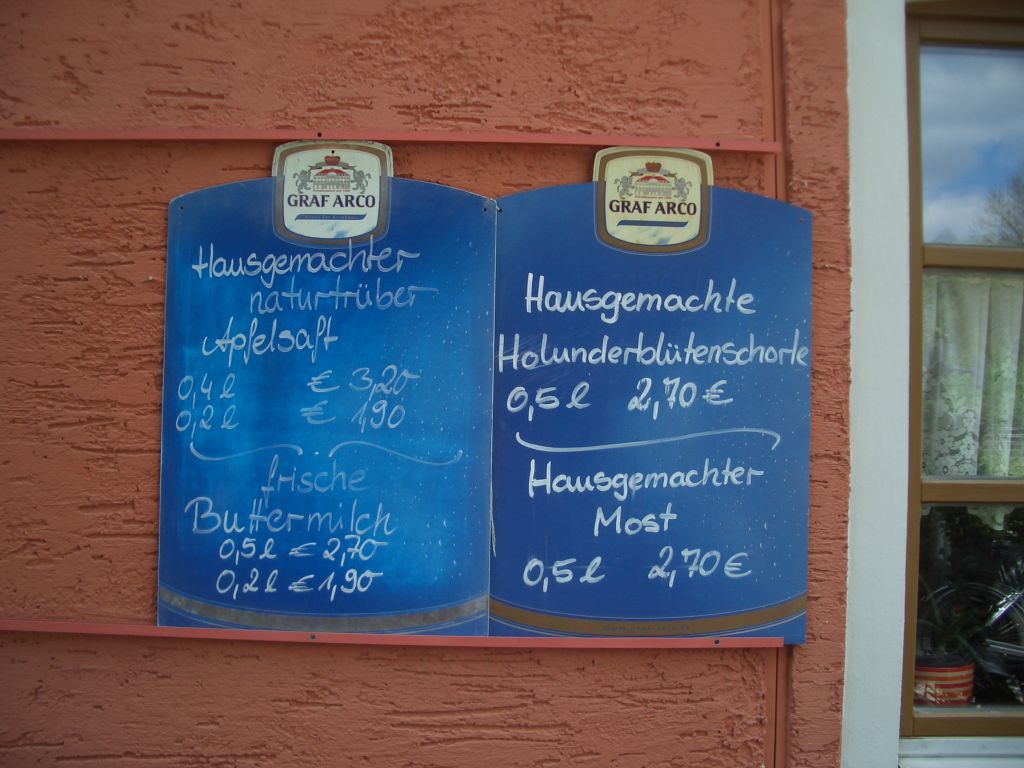 GRAF ARCO
Hausgemachter
naturtrüber
Apfelsaft
0,4 l € 3,20
0,2 l € 1,90
frische
Buttermilch
0,5 l € 2,70
0,2 l € 1,90
GRAF ARCO
Hausgemachte
Holunderblütenschorle
0,5 l 2,70 €
Hausgemachter
Most
0,5 l 2,70 €